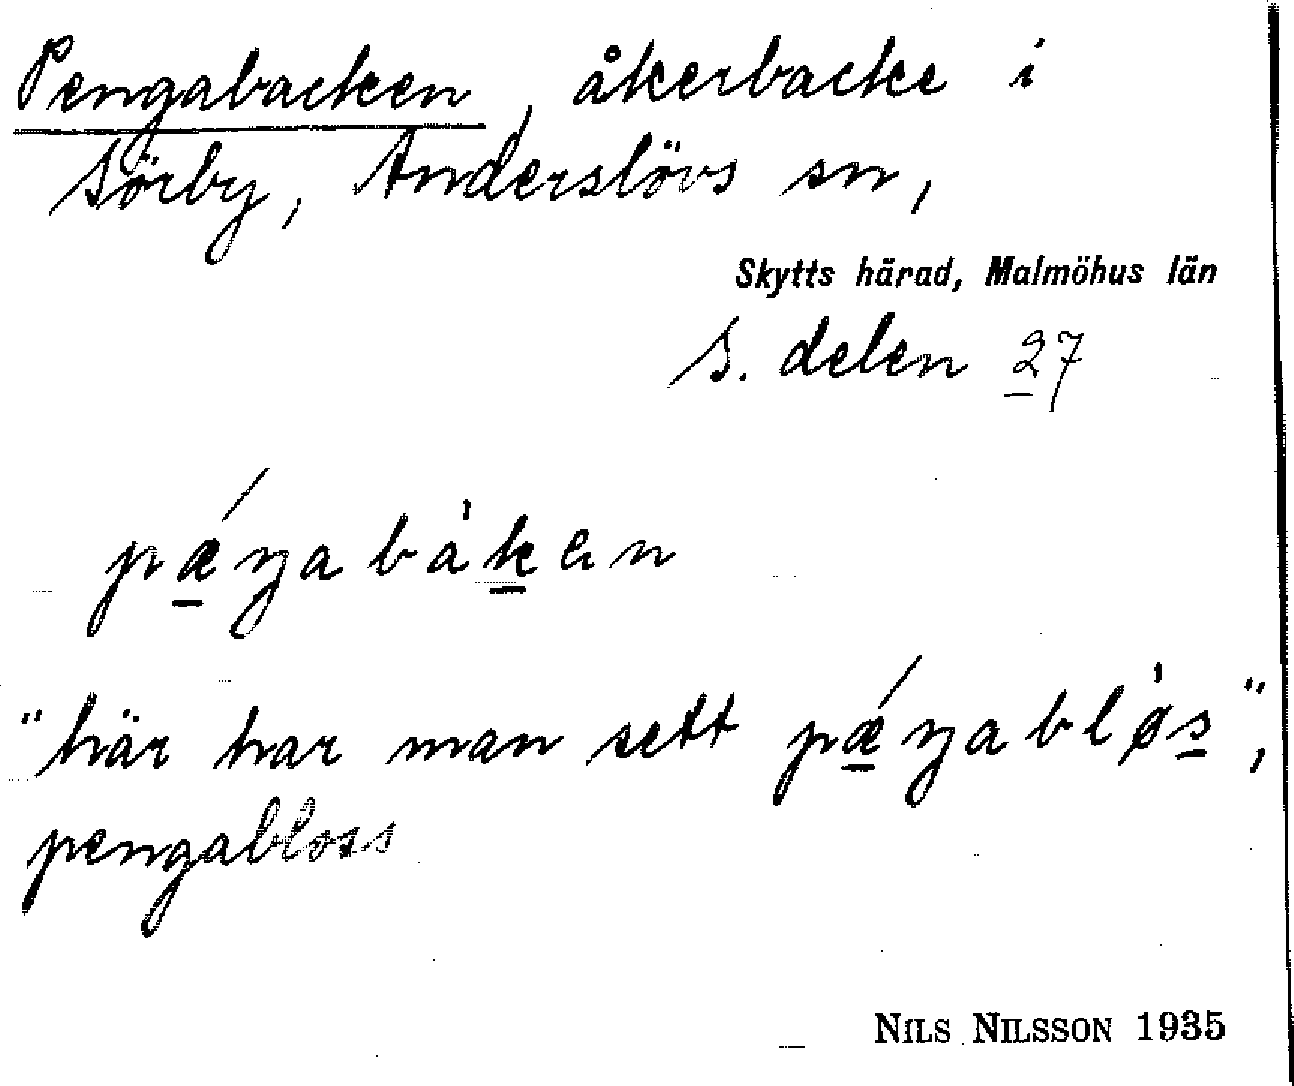 Pengabacken, åkerbacke i
Sörby, Anderslövs sn,
Skytts härad, Malmöhus län
S. delen 27
pǽŋabàkɘn
"här har man sett pǽŋabløs",
pengabloss
NILS NILSSON 1935